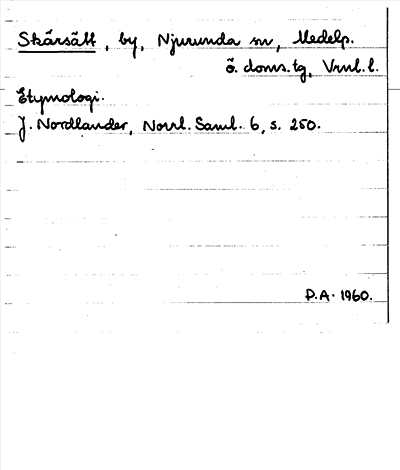 Skärsätt, by, Njurunda sn, Medelp.
ö. doms.tg, Vrnl. l.
Etymologi.
J. Nordlander, Norrl. Saml. 6, s. 250.
P.A. 1960.